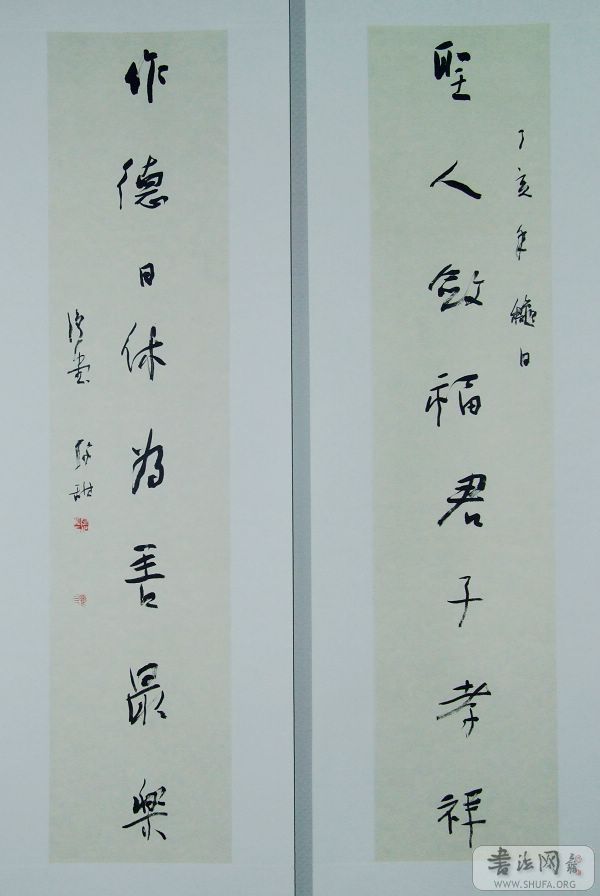 丁亥年龝日
聖人斂福君子考祥
作德日休為善最樂
書法网
WWW.SHUFA.ORG